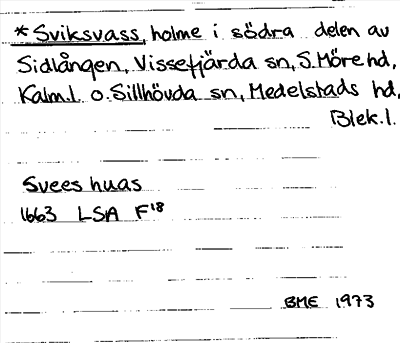 *Sviksvass, holme i södra delen av
Sidlången, Vissefjärda sn, S. Möre hd,
Kalm.l. o. Sillhövda sn, Medelstads hd,
Blek.l.
Svees huas
1663 LSA F¹⁸
BME 1973